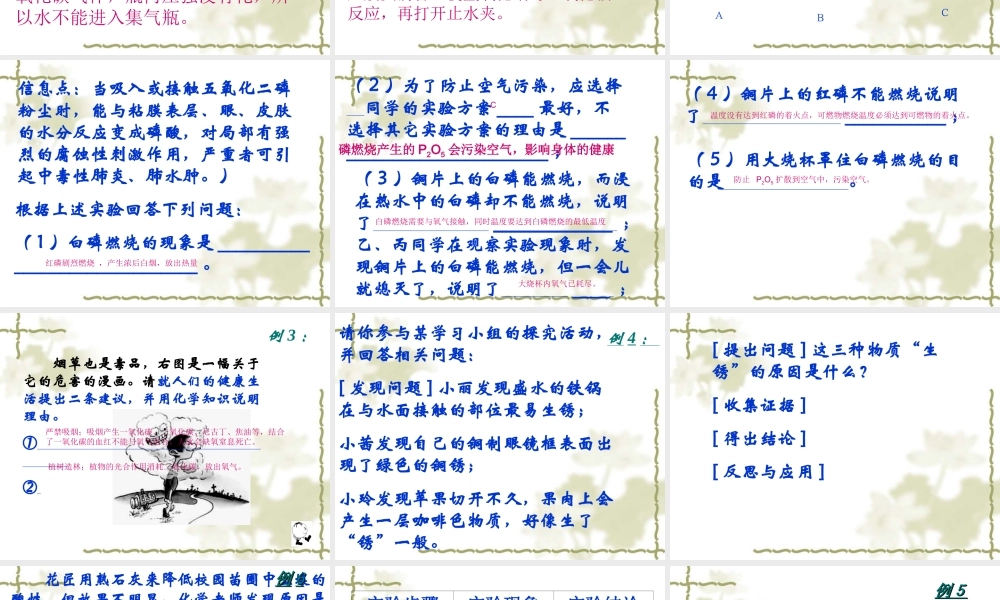 以水不能进入集气瓶。
反应，再打开止水夹。
A
B
C
信息点：当吸入或接触五氧化二磷
粉尘时，能与粘膜表层、眼、皮肤
的水分反应变成磷酸，对局部有强
烈的腐蚀性刺激作用，严重者可引
起中毒性肺炎、肺水肿。）
根据上述实验回答下列问题：
（1）白磷燃烧的现象是
红磷剧烈燃烧 ，产生浓后白烟，放出热量
。
（2）为了防止空气污染，应选择
同学的实验方案 C 最好，不
选择其它实验方案的理由是
磷燃烧产生的 P2O5 会污染空气，影响身体的健康
；
（3）铜片上的白磷能燃烧，而浸
在热水中的白磷却不能燃烧，说明
了 白磷燃烧需要与氧气接触，同时温度要达到白磷燃烧的最低温度 ；
乙、丙同学在观察实验现象时，发
现铜片上的白磷能燃烧，但一会儿
就熄灭了，说明了 大烧杯内氧气已耗尽。 ；
（4）铜片上的红磷不能燃烧说明
了 温度没有达到红磷的着火点，可燃物燃烧温度必须达到可燃物的着火点。 ；
（5）用大烧杯罩住白磷燃烧的目
的是 防止 P2O5 扩散到空气中，污染空气。 。
例 3 ：
烟草也是毒品，右图是一幅关于
它的危害的漫画。请就人们的健康生
活提出二条建议，并用化学知识说明
理由。
严禁吸烟；吸烟产生一氧化碳、二氧化碳、尼古丁、焦油等，结合
①
了一氧化碳的血红不能与氧 缺氧窒息死亡。
植树造林；植物的光合作用消耗二氧化碳，放出氧气。
②
请你参与某学习小组的探究活动，
例 4 ：
并回答相关问题：
[ 发现问题 ] 小丽发现盛水的铁锅
在与水面接触的部位最易生锈；
小茜发现自己的铜制眼镜框表面出
现了绿色的铜锈；
小玲发现苹果切开不久，果肉上会
产生一层咖啡色物质，好像生了
“锈”一般。
[ 提出问题 ] 这三种物质“生
锈”的原因是什么？
[ 收集证据 ]
[ 得出结论 ]
[ 反思与应用 ]
花匠用熟石灰来降低校园苗圃中 的
例 5